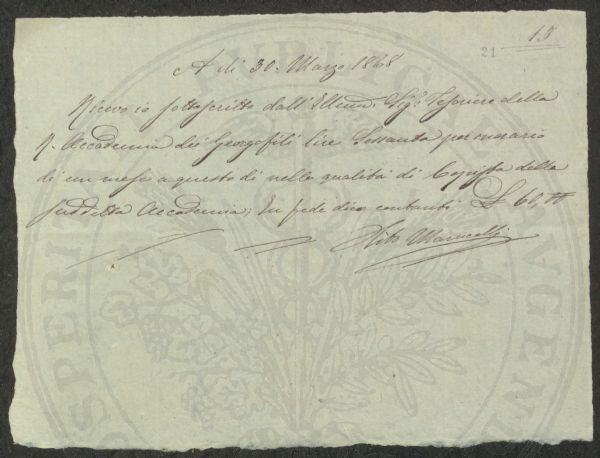 15
21
A di 30. Marzo 1868
Ricevo io sottoscritto dall'Illmo. Sigr. Tesoriere della
R. Accademia dei Georgofili lire Sessanta per onorario
di un mese a questo dì nella qualità di Copista della
suddetta Accademia; In fede dico contanti £ 60,00
Marucelli
PUBLICAE
PROSPERITATI
AUGENDAE